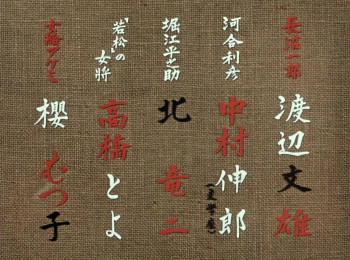 渡辺文雄
河合利彦
中村伸郎
(文学座)
堀江平之助
北竜二
「若松」の女将
高橋とよ
櫻むつ子